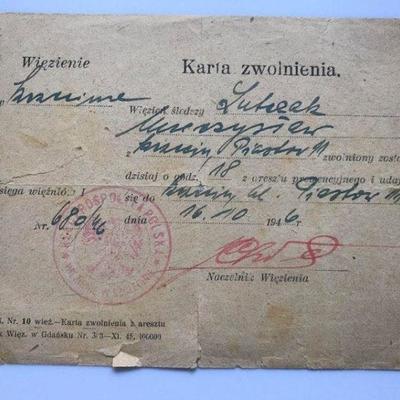 Więzienie
Karta zwolnienia.
Więzień śledczy
Mieczysław
z Piastów 11 zwolniony zosta
dzisiaj o godz. 18 z aresztu prewencyjnego i uda
sięga więźniów I
się do ul. Piastów 11
Nr. 680/46
dnia 16.10 1946.
Naczelnik Więzienia
Nr. 10 więź.—Karta zwolnienia z aresztu
Więz. w Gdańsku Nr. 3/3—XI. 45, 100000